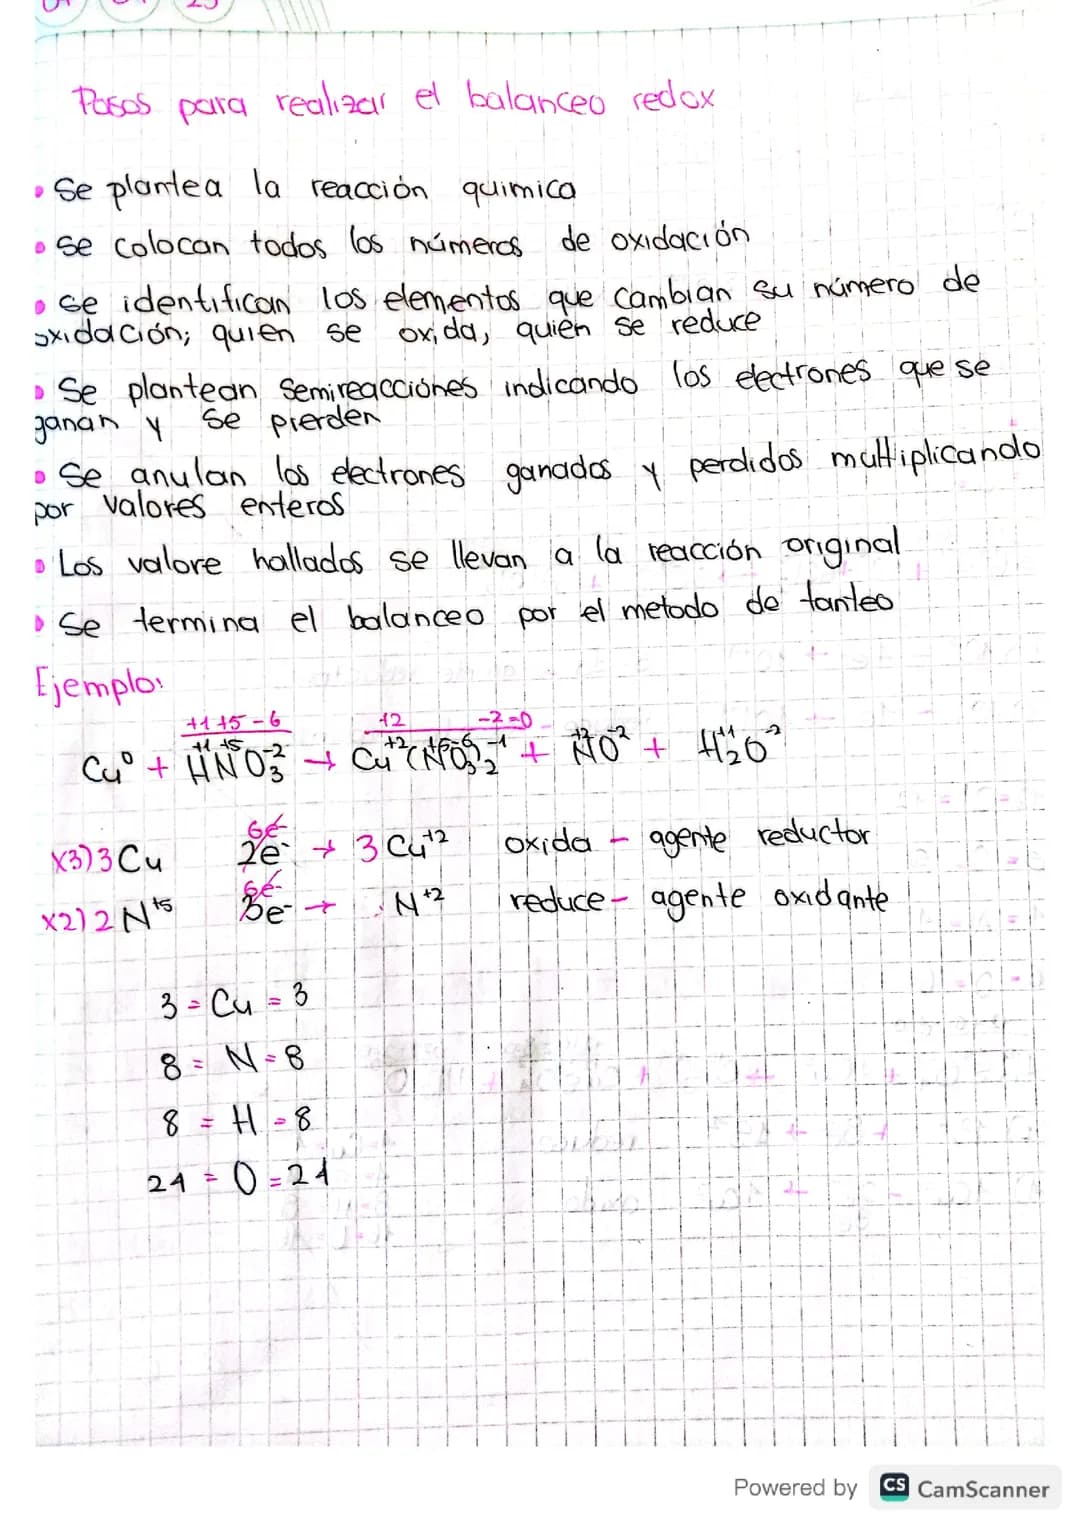 Pasos para realizar el balanceo redox
• Se plantea la reacción quimica
• Se colocan todos los números de oxidación
• Se identifican los elementos que cambian su número de
oxidación; quien se oxida, quién se reduce
• Se plantean semireacciónes indicando los electrones que se
ganan y se pierden
• Se anulan los electrones ganados y perdidos multiplicando
por valores enteros
• Los valore hallados se llevan a la reacción original
• Se termina el balanceo por el metodo de tanteo
Ejemplo:
+1 +5 -6 +2 -2=0
Cu⁰ + H⁺¹N⁺⁵O₃⁻² → Cu⁺²(N⁺⁵O₃⁻⁶)₂⁻¹ + N⁺²O⁻² + H₂⁺¹O⁻²
6e⁻
x3) 3 Cu 2e⁻ → 3 Cu⁺² oxida - agente reductor
6e⁻
x2) 2 N⁺⁵ 3e⁻ → N⁺² reduce - agente oxidante
3 = Cu = 3
8 = N = 8
8 = H = 8
24 = O = 24
Powered by CS CamScanner